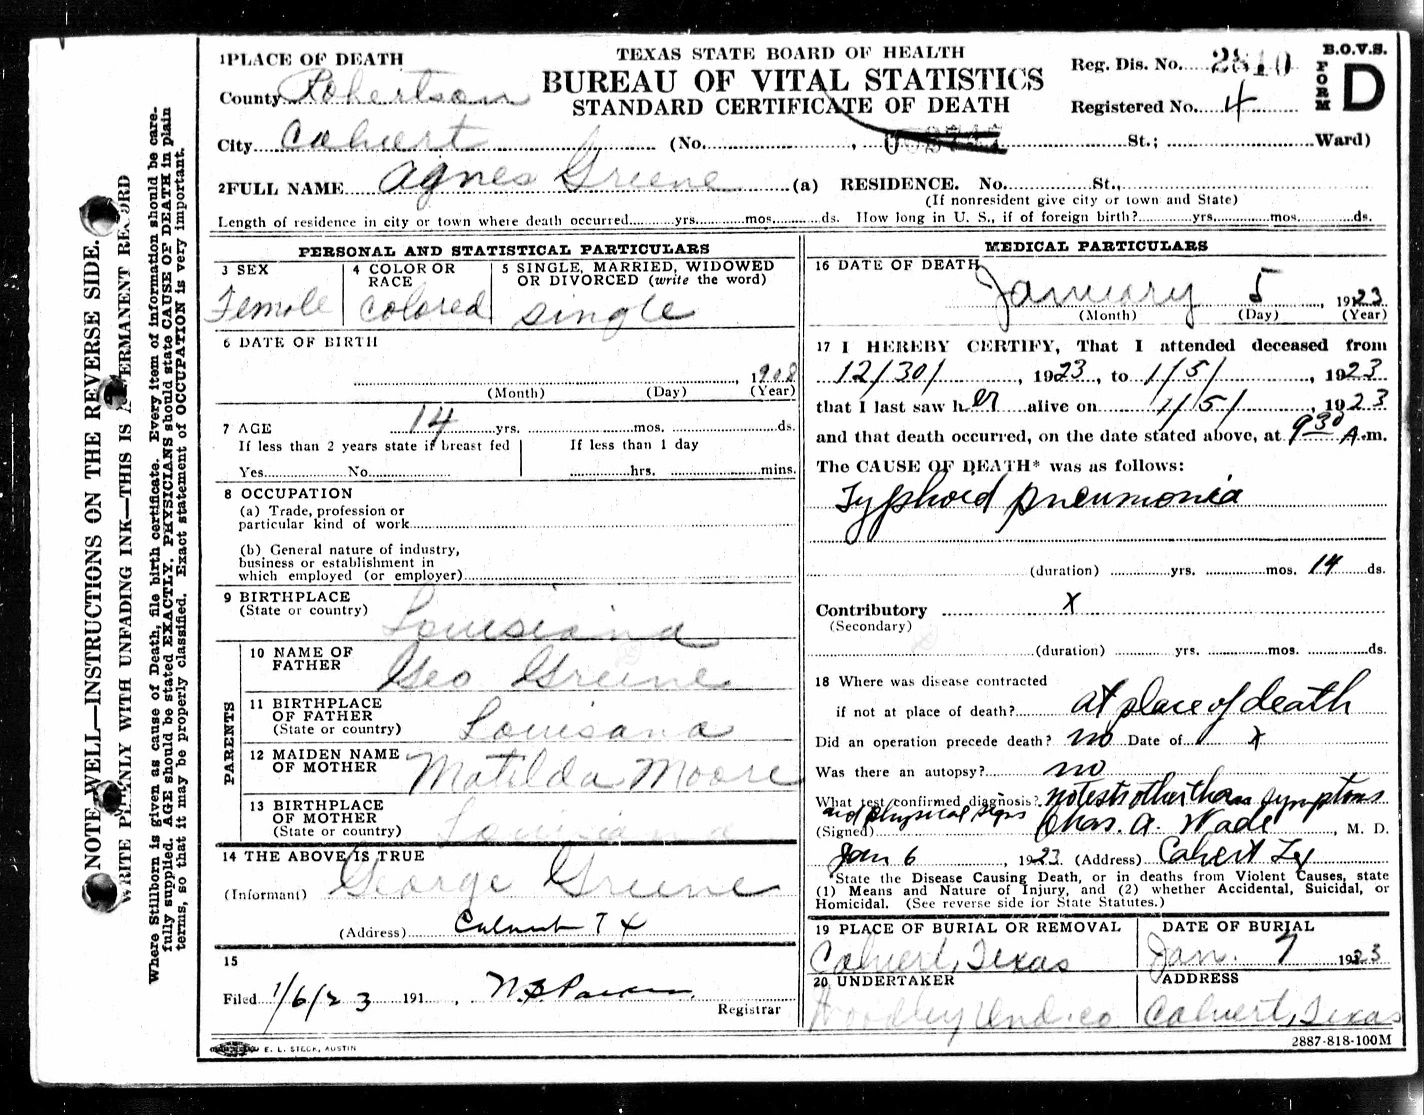 TEXAS STATE BOARD OF HEALTH
BUREAU OF VITAL STATISTICS
STANDARD CERTIFICATE OF DEATH
B.O.V.S.
FORM D
Reg. Dis. No. 2810
Registered No. 4
1 PLACE OF DEATH
County Robertson
City Calvert (No. , St.; Ward)
2 FULL NAME Agnes Greene (a) RESIDENCE. No. St.,
(If nonresident give city or town and State)
Length of residence in city or town where death occurred yrs. mos. ds. How long in U. S., if of foreign birth? yrs. mos. ds.
PERSONAL AND STATISTICAL PARTICULARS
3 SEX
Female
4 COLOR OR RACE
Colored
5 SINGLE, MARRIED, WIDOWED OR DIVORCED (write the word)
Single
6 DATE OF BIRTH
, 1908
(Month) (Day) (Year)
7 AGE 14 yrs. mos. ds.
If less than 2 years state if breast fed
Yes No
If less than 1 day
hrs. mins.
8 OCCUPATION
(a) Trade, profession or
particular kind of work
(b) General nature of industry,
business or establishment in
which employed (or employer)
9 BIRTHPLACE
(State or country) Louisiana
PARENTS
10 NAME OF FATHER Geo Greene
11 BIRTHPLACE OF FATHER
(State or country) Louisana
12 MAIDEN NAME OF MOTHER Matilda Moore
13 BIRTHPLACE OF MOTHER
(State or country) Louisiana
14 THE ABOVE IS TRUE
(Informant) George Greene
(Address) Calvert TX
15
Filed 1/6/23 191 ,
Registrar
MEDICAL PARTICULARS
16 DATE OF DEATH
January 5, 1923
(Month) (Day) (Year)
17 I HEREBY CERTIFY, That I attended deceased from
12/30/ , 1923, to 1/5/ , 1923
that I last saw her alive on 1/5/ , 1923
and that death occurred, on the date stated above, at 9 30 A.m.
The CAUSE OF DEATH* was as follows:
Typhoid pneumonia
(duration) yrs. mos. 14 ds.
Contributory x
(Secondary)
(duration) yrs. mos. ds.
18 Where was disease contracted
if not at place of death? at place of death
Did an operation precede death? no Date of x
Was there an autopsy? no
What test confirmed diagnosis? no tests other than symptoms
and physical signs
(Signed) Chas. A. Wade, M. D.
Jan 6, 1923 (Address) Calvert Tex
State the Disease Causing Death, or in deaths from Violent Causes, state
(1) Means and Nature of Injury, and (2) whether Accidental, Suicidal, or
Homicidal. (See reverse side for State Statutes.)
19 PLACE OF BURIAL OR REMOVAL
Calvert, Texas
DATE OF BURIAL
Jan. 7 1923
20 UNDERTAKER
Und. co
ADDRESS
Calvert, Texas
E. L. STECK, AUSTIN
2887-818-100M
NOTE WELL—INSTRUCTIONS ON THE REVERSE SIDE.
WRITE PLAINLY WITH UNFADING INK—THIS IS A PERMANENT RECORD
Where Stillborn is given as cause of Death, file birth certificate. Every item of information should be care.
fully supplied. AGE should be stated EXACTLY. PHYSICIANS should state CAUSE OF DEATH in plain
terms, so that it may be properly classified. Exact statement of OCCUPATION is very important.